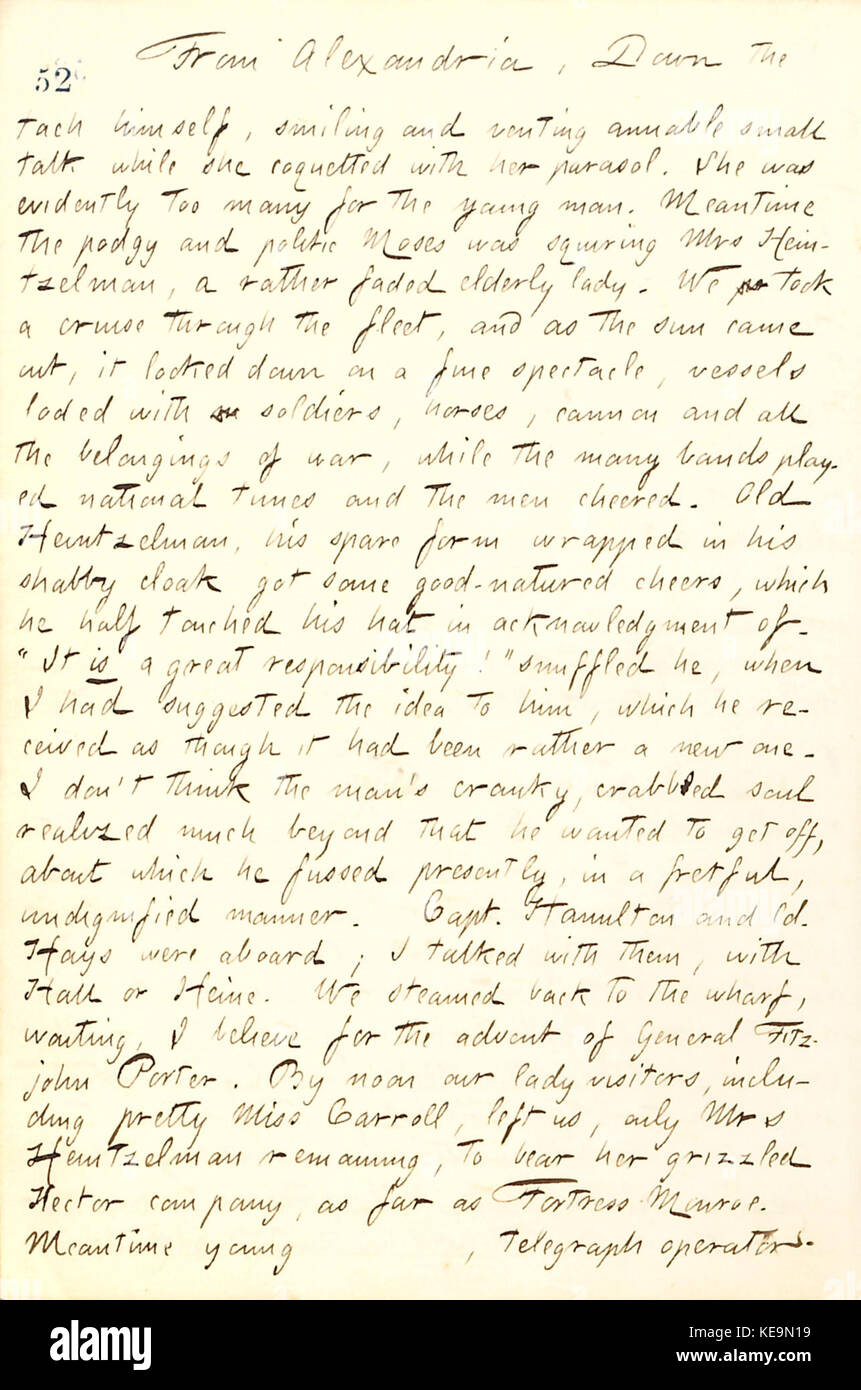 From Alexandria, Down the
52
tach himself, smiling and venting amiable small
talk while she coquetted with her parasol. She was
evidently too many for the young man. Meantime
the podgy and politic Moses was squiring Mrs Hein-
tzelman, a rather faded elderly lady. We took
a cruise through the fleet, and as the sun came
out, it looked down on a fine spectacle, vessels
loded with soldiers, horses, cannon and all
the belongings of war, while the many bands play-
ed national tunes and the men cheered. Old
Heintzelman, his spare form wrapped in his
shabby cloak got some good-natured cheers, which
he half touched his hat in acknowledgment of.
"It is a great responsibility!" snuffled he, when
I had suggested the idea to him, which he re-
ceived as though it had been rather a new one.
I don't think the man's cranky, crabbed soul
realized much beyond that he wanted to get off,
about which he fussed presently, in a fretful,
undignified manner. Capt. Hamilton and Ed.
Hays were aboard; I talked with them, with
Hall or Heine. We steamed back to the wharf,
waiting, I believe for the advent of General Fitz-
john Porter. By noon our lady visitors, inclu-
ding pretty Miss Carroll, left us, only Mrs
Heintzelman remaining, to bear her grizzled
Hector company, as far as Fortress Monroe.
Meantime young , telegraph operator.
alamy
Image ID: KE9N19
www.alamy.com